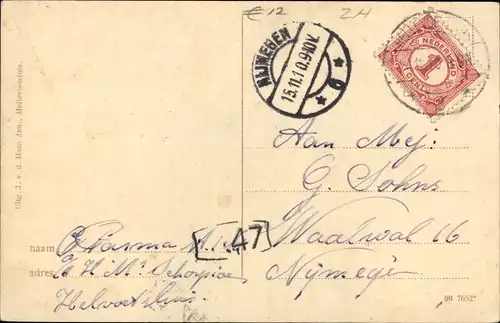 € 12
ZH
NIJMEGEN
15.11.10.9-10V.
* 9 *
NEDERLAND
1
CENT
Aan Mej:
G. Sohns
Waalwal 16
Nijmegen
[47]
naam
adres H. M. Schorpioen
Helvoetsluis
Uitg. J. v. d. Haas Jzn., Hellevoetsluis.
09 7652